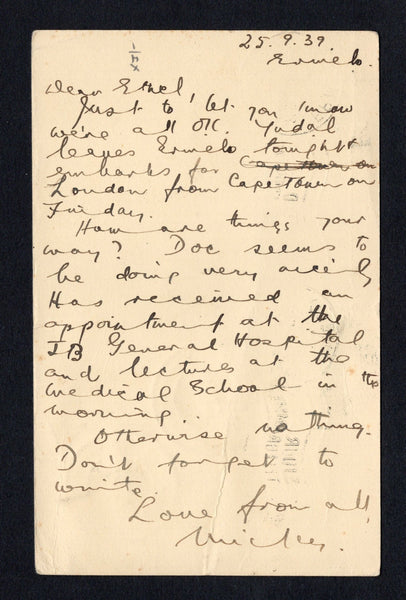 25.9.39.
Ermelo.
Dear Ethel,
Just to let you know
we're all OK. Yudal
leaves Ermelo tonight &
embarks for Cape Town on
London from Cape Town on
Friday.
How are things your
way? Doc seems to
be doing very nicely
Has received an
appointment at the
JB General Hospital
and lectures at the
Medical School in the
morning.
Otherwise nothing.
Don't forget to
write.
Love from all,